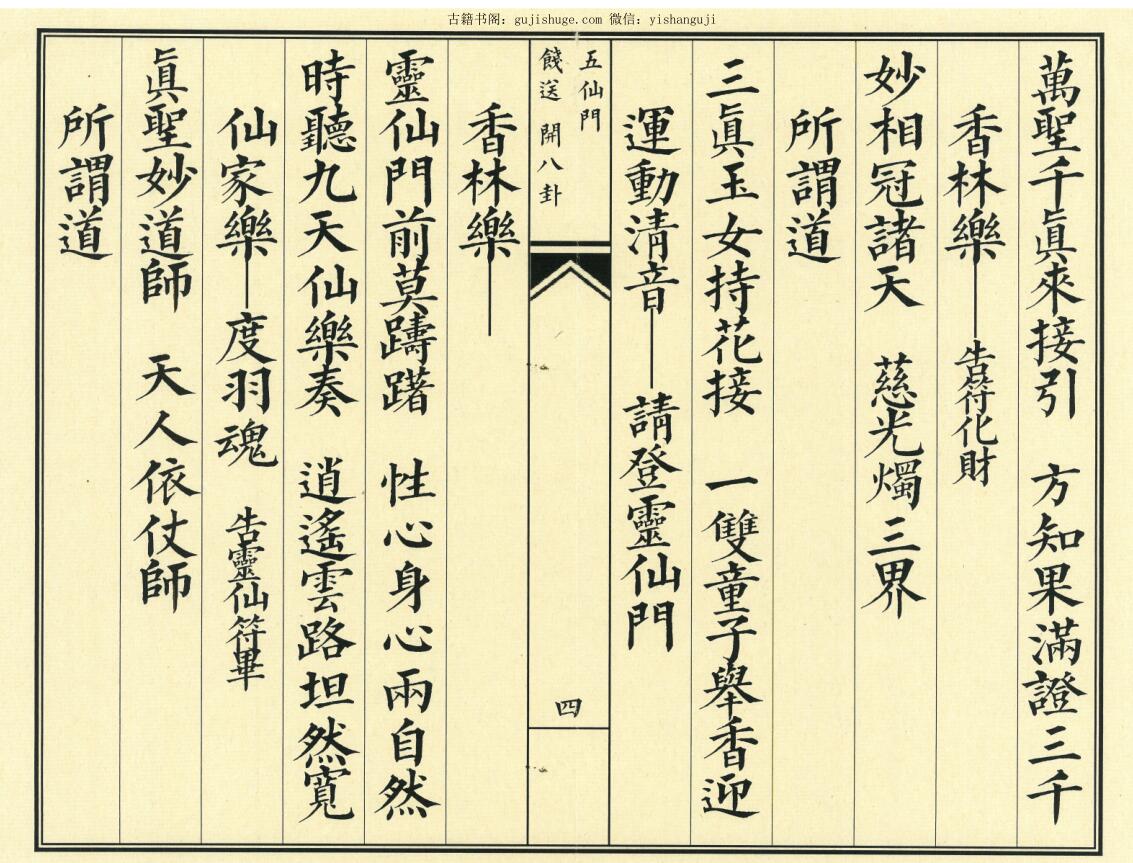 古籍书阁：gujishuge.com 微信：yishanguji
萬聖千眞來接引　方知果滿證三千
香林樂——告符化財
妙相冠諸天　慈光燭三界
所謂道
三眞玉女持花接　一雙童子舉香迎
運動清音——請登靈仙門
五仙門
餞送　開八卦
四
香林樂——
靈仙門前莫躊躇　性心身心兩自然
時聽九天仙樂奏　逍遙雲路坦然寬
仙家樂——度羽魂　告靈仙符畢
眞聖妙道師　天人依仗師
所謂道